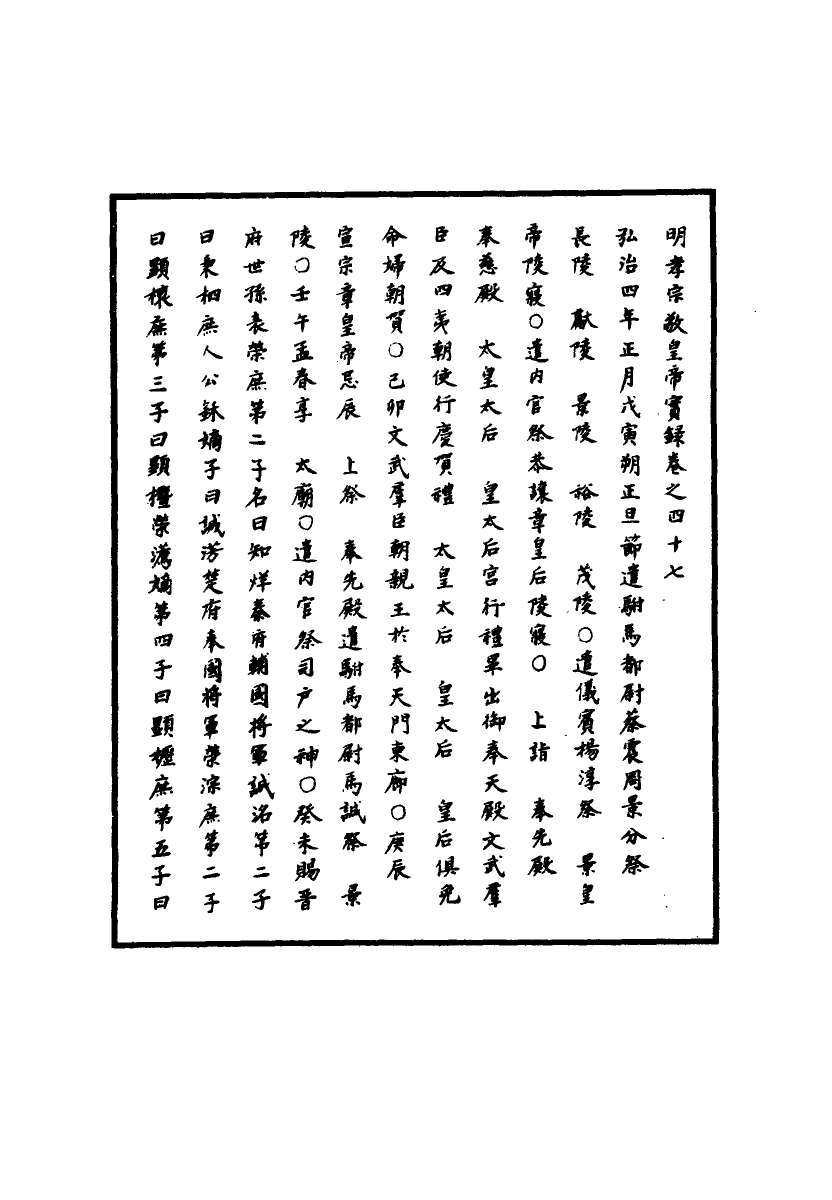 明孝宗敬皇帝實錄卷之四十七
弘治四年正月戊寅朔正旦節遣駙馬都尉蔡震周景分祭
長陵　獻陵　景陵　裕陵　茂陵○遣儀賓楊淳祭　景皇
帝陵寢○遣内官祭恭讓章皇后陵寢○　上詣　奉先殿
奉慈殿　太皇太后　皇太后宮行禮畢出御奉天殿文武羣
臣及四夷朝使行慶賀禮　太皇太后　皇太后　皇后俱免
命婦朝賀○己卯文武羣臣朝親王於奉天門東廊○庚辰
宣宗章皇帝忌辰　上祭　奉先殿遣駙馬都尉馬誠祭　景
陵○壬午孟春享　太廟○遣内官祭司户之神○癸未賜晋
府世孫表榮庶第二子名曰知烊秦府輔國將軍誠洺第二子
曰秉栶庶人公鉌嫡子曰誠澇楚府奉國將軍榮淙庶第二子
曰顯櫰庶第三子曰顯櫮榮濿嫡第四子曰顯㰖庶第五子曰